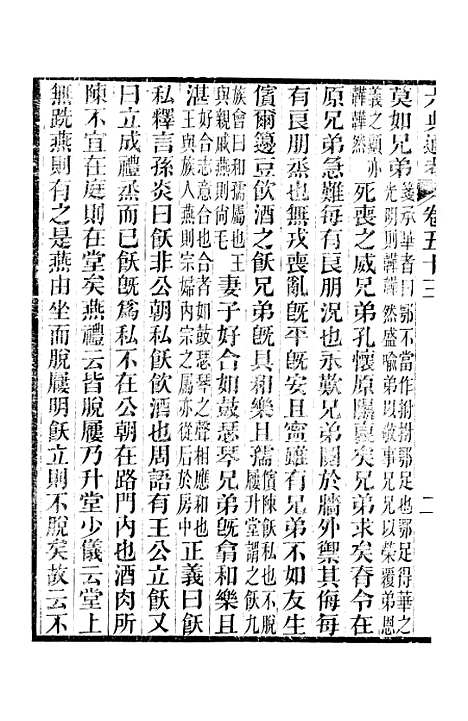 六典通考 卷五十三 二
莫如兄弟箋承華者曰鄂不當作䉤䉤鄂足也鄂足得華之光明則韡韡然盛喻弟以敬事兄兄以榮覆弟恩義之顯亦韡韡然死喪之威兄弟孔懷原隰裒矣兄弟求矣脊令在
原兄弟急難每有良朋況也永歎兄弟鬩於牆外禦其侮每
有良朋烝也無戎喪亂旣平旣安且寧雖有兄弟不如友生
儐爾籩豆飲酒之飫兄弟旣具和樂且孺儐陳飫私也不脫屨升堂謂之飫九
族會曰和孺屬也王與親戚燕則尚毛妻子好合如鼓瑟琴兄弟旣翕和樂且
湛好合志意合也合者如鼓瑟琴之聲相應和也王與族人燕則宗婦內宗之屬亦從后於房中正義曰飫
私釋言孫炎曰飫非公朝私飫飲酒也周語有王公立飫又
曰立成禮烝而已飫旣爲私不在公朝在路門內也酒肉所
陳不宜在庭則在堂矣燕禮云皆脫屨乃升堂少儀云堂上
無跣燕則有之是燕由坐而脫屨明飫立則不脫矣故云不